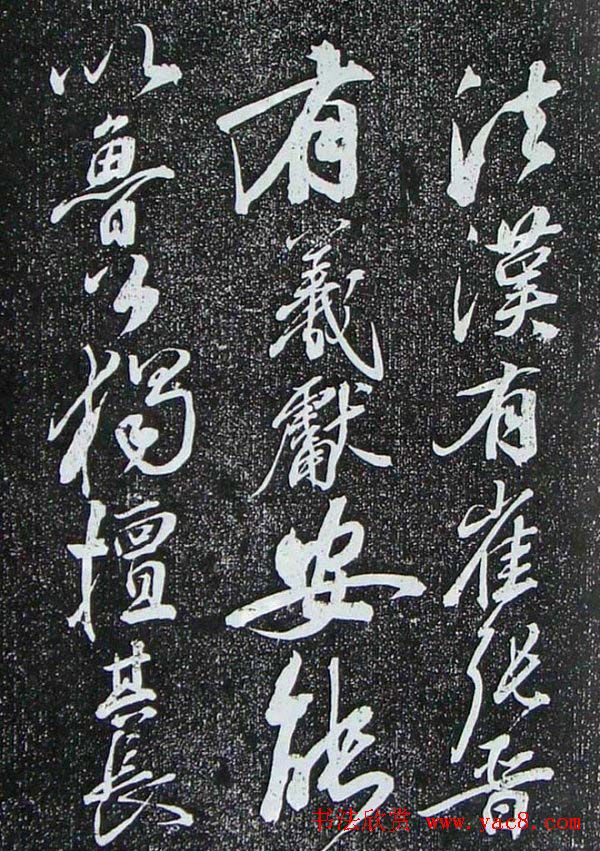 法漢有崔張晋
有羲獻安能
以魯公獨擅其長
书法欣赏 www.yac8.com